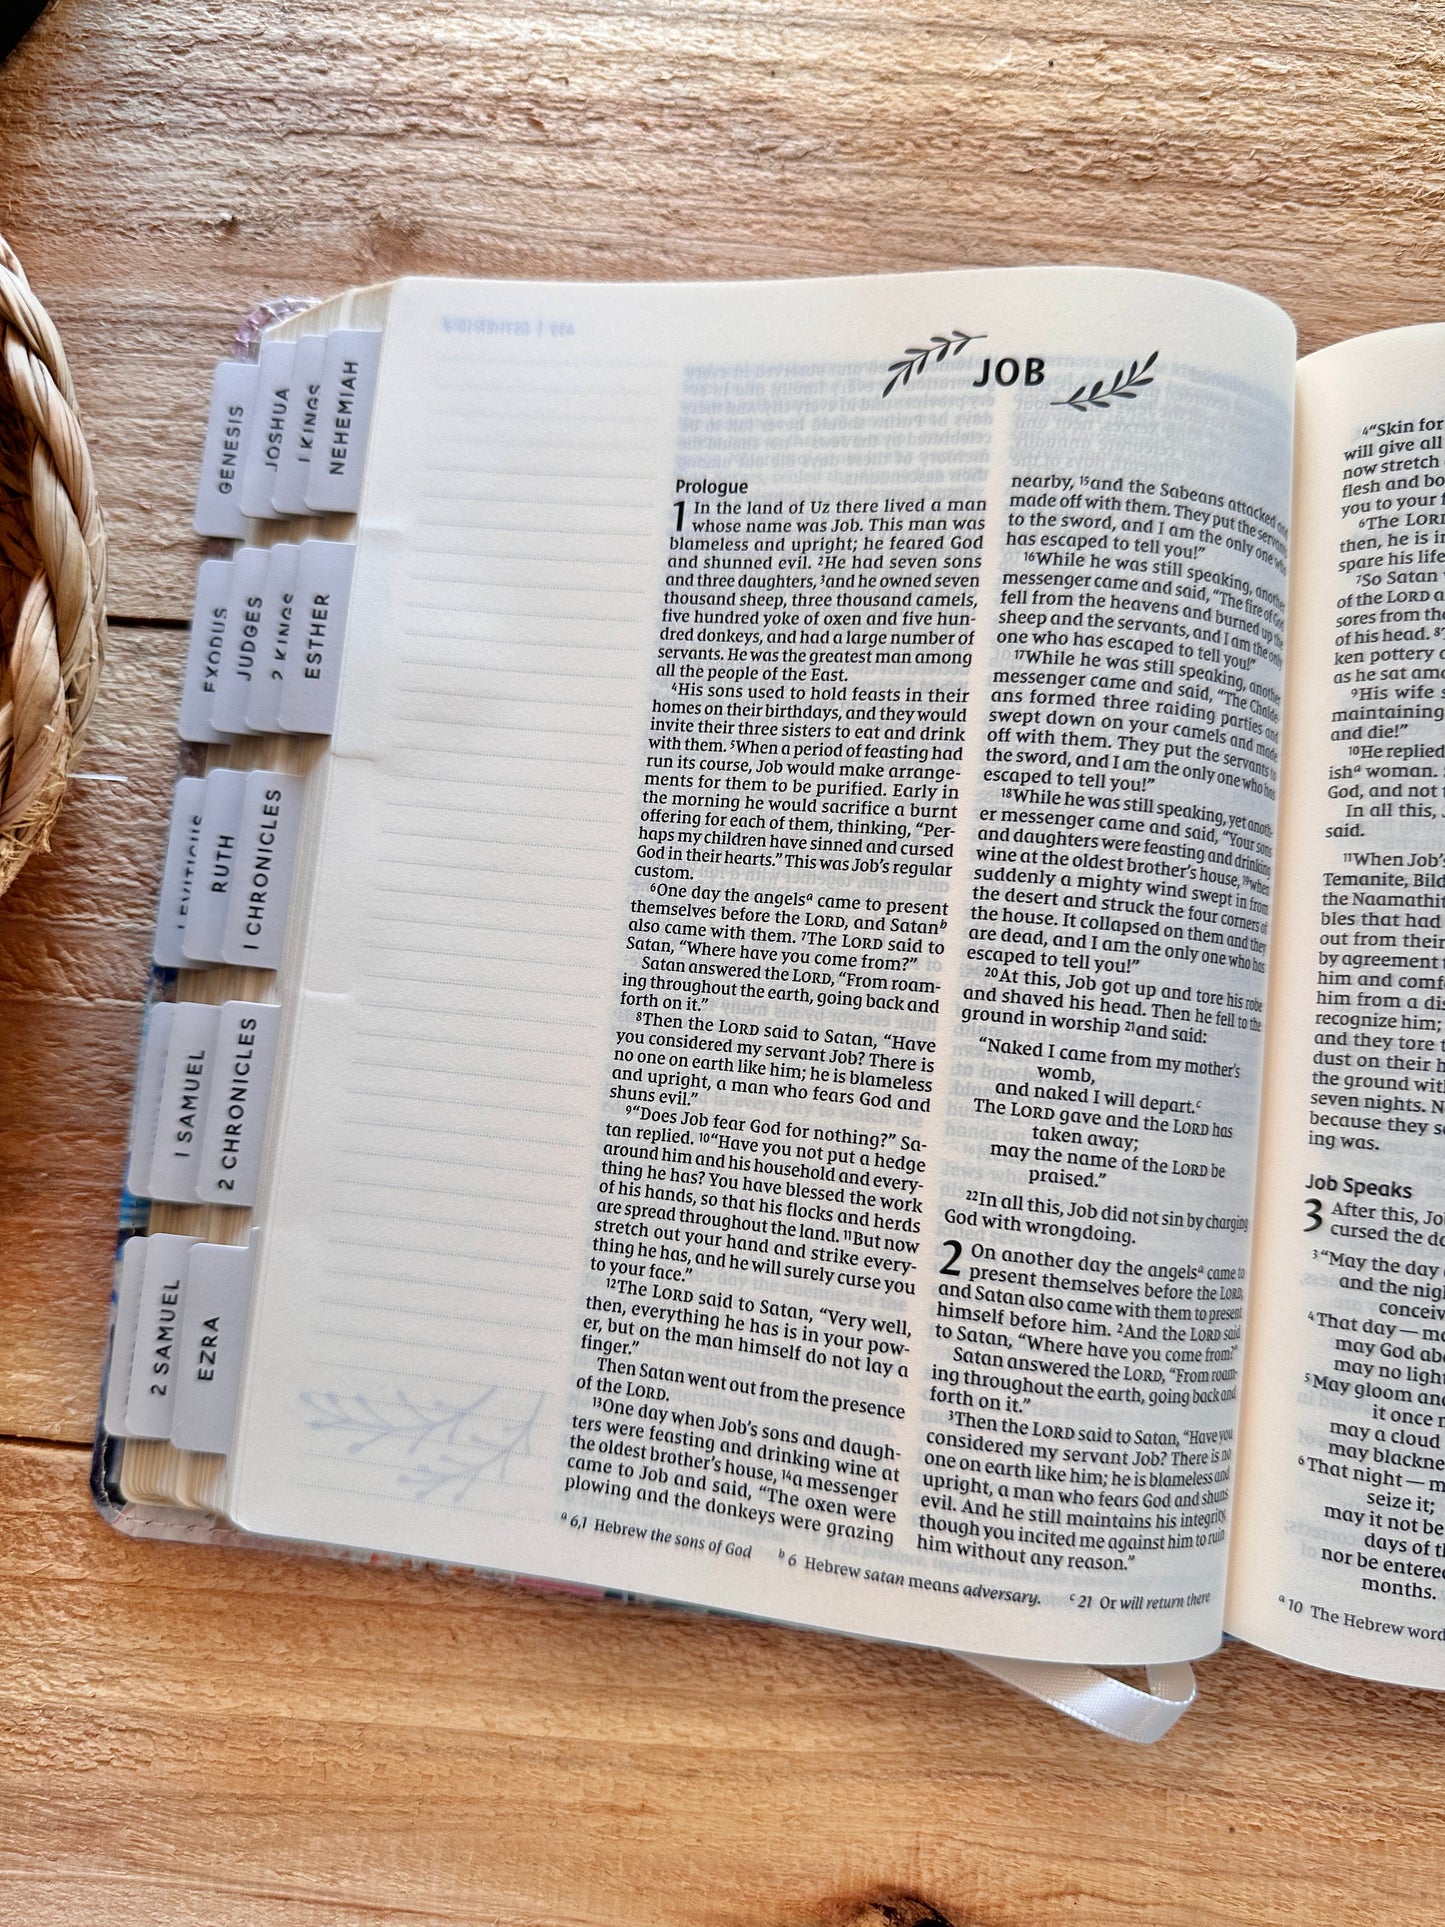 GENESIS
JOSHUA
1 KINGS
NEHEMIAH
EXODUS
JUDGES
2 KINGS
ESTHER
LEVITICUS
RUTH
1 CHRONICLES
1 SAMUEL
2 CHRONICLES
2 SAMUEL
EZRA
JOB
Prologue
1 In the land of Uz there lived a man
whose name was Job. This man was
blameless and upright; he feared God
and shunned evil. 2He had seven sons
and three daughters, 3and he owned seven
thousand sheep, three thousand camels,
five hundred yoke of oxen and five hun-
dred donkeys, and had a large number of
servants. He was the greatest man among
all the people of the East.
4His sons used to hold feasts in their
homes on their birthdays, and they would
invite their three sisters to eat and drink
with them. 5When a period of feasting had
run its course, Job would make arrange-
ments for them to be purified. Early in
the morning he would sacrifice a burnt
offering for each of them, thinking, “Per-
haps my children have sinned and cursed
God in their hearts.” This was Job’s regular
custom.
6One day the angelsa came to present
themselves before the LORD, and Satanb
also came with them. 7The LORD said to
Satan, “Where have you come from?”
Satan answered the LORD, “From roam-
ing throughout the earth, going back and
forth on it.”
8Then the LORD said to Satan, “Have
you considered my servant Job? There is
no one on earth like him; he is blameless
and upright, a man who fears God and
shuns evil.”
9“Does Job fear God for nothing?” Sa-
tan replied. 10“Have you not put a hedge
around him and his household and every-
thing he has? You have blessed the work
of his hands, so that his flocks and herds
are spread throughout the land. 11But now
stretch out your hand and strike every-
thing he has, and he will surely curse you
to your face.”
12The LORD said to Satan, “Very well,
then, everything he has is in your pow-
er, but on the man himself do not lay a
finger.”
Then Satan went out from the presence
of the LORD.
13One day when Job’s sons and daugh-
ters were feasting and drinking wine at
the oldest brother’s house, 14a messenger
came to Job and said, “The oxen were
plowing and the donkeys were grazing
nearby, 15and the Sabeans attacked and
made off with them. They put the servants
to the sword, and I am the only one who
has escaped to tell you!”
16While he was still speaking, another
messenger came and said, “The fire of God
fell from the heavens and burned up the
sheep and the servants, and I am the only
one who has escaped to tell you!”
17While he was still speaking, another
messenger came and said, “The Chalde-
ans formed three raiding parties and
swept down on your camels and made
off with them. They put the servants to
the sword, and I am the only one who has
escaped to tell you!”
18While he was still speaking, yet anoth-
er messenger came and said, “Your sons
and daughters were feasting and drinking
wine at the oldest brother’s house, 19when
suddenly a mighty wind swept in from
the desert and struck the four corners of
the house. It collapsed on them and they
are dead, and I am the only one who has
escaped to tell you!”
20At this, Job got up and tore his robe
and shaved his head. Then he fell to the
ground in worship 21and said:
“Naked I came from my mother’s
womb,
and naked I will depart.c
The LORD gave and the LORD has
taken away;
may the name of the LORD be
praised.”
22In all this, Job did not sin by charging
God with wrongdoing.
2 On another day the angelsa came to
present themselves before the LORD,
and Satan also came with them to present
himself before him. 2And the LORD said
to Satan, “Where have you come from?”
Satan answered the LORD, “From roam-
ing throughout the earth, going back and
forth on it.”
3Then the LORD said to Satan, “Have you
considered my servant Job? There is no
one on earth like him; he is blameless and
upright, a man who fears God and shuns
evil. And he still maintains his integrity,
though you incited me against him to ruin
him without any reason.”
a 6,1 Hebrew the sons of God b 6 Hebrew satan means adversary. c 21 Or will return there
4“Skin for
will give all
now stretch
flesh and bo
you to your f
6The LORD
then, he is in
spare his life
7So Satan
of the LORD a
sores from the
of his head. 8
ken pottery
as he sat amo
9His wife s
maintaining
and die!”
10He replied
isha woman.
God, and not
In all this,
said.
11When Job’s
Temanite, Bild
the Naamathit
bles that had
out from their
by agreement
him and comf
him from a dis
recognize him;
and they tore t
dust on their h
the ground with
seven nights. N
because they s
ing was.
Job Speaks
3 After this, Jo
cursed the da
3“May the day
and the nig
conceiv
4That day—ma
may God abo
may no light
5May gloom and
it once m
may a cloud
may blackne
6That night—m
seize it;
may it not be
days of th
nor be entered
months.
a 10 The Hebrew word